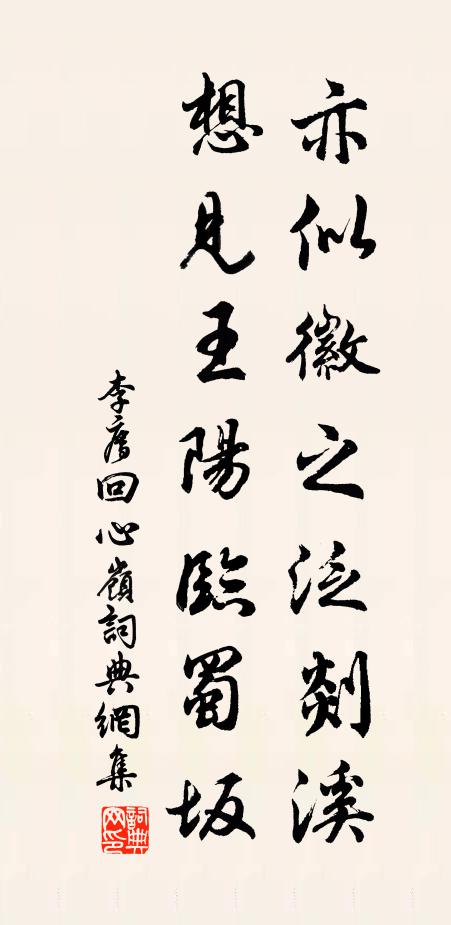 亦似徽之泛剡溪
想見王陽臨蜀坂
李廌回心嶺詞典網集
詞典網印